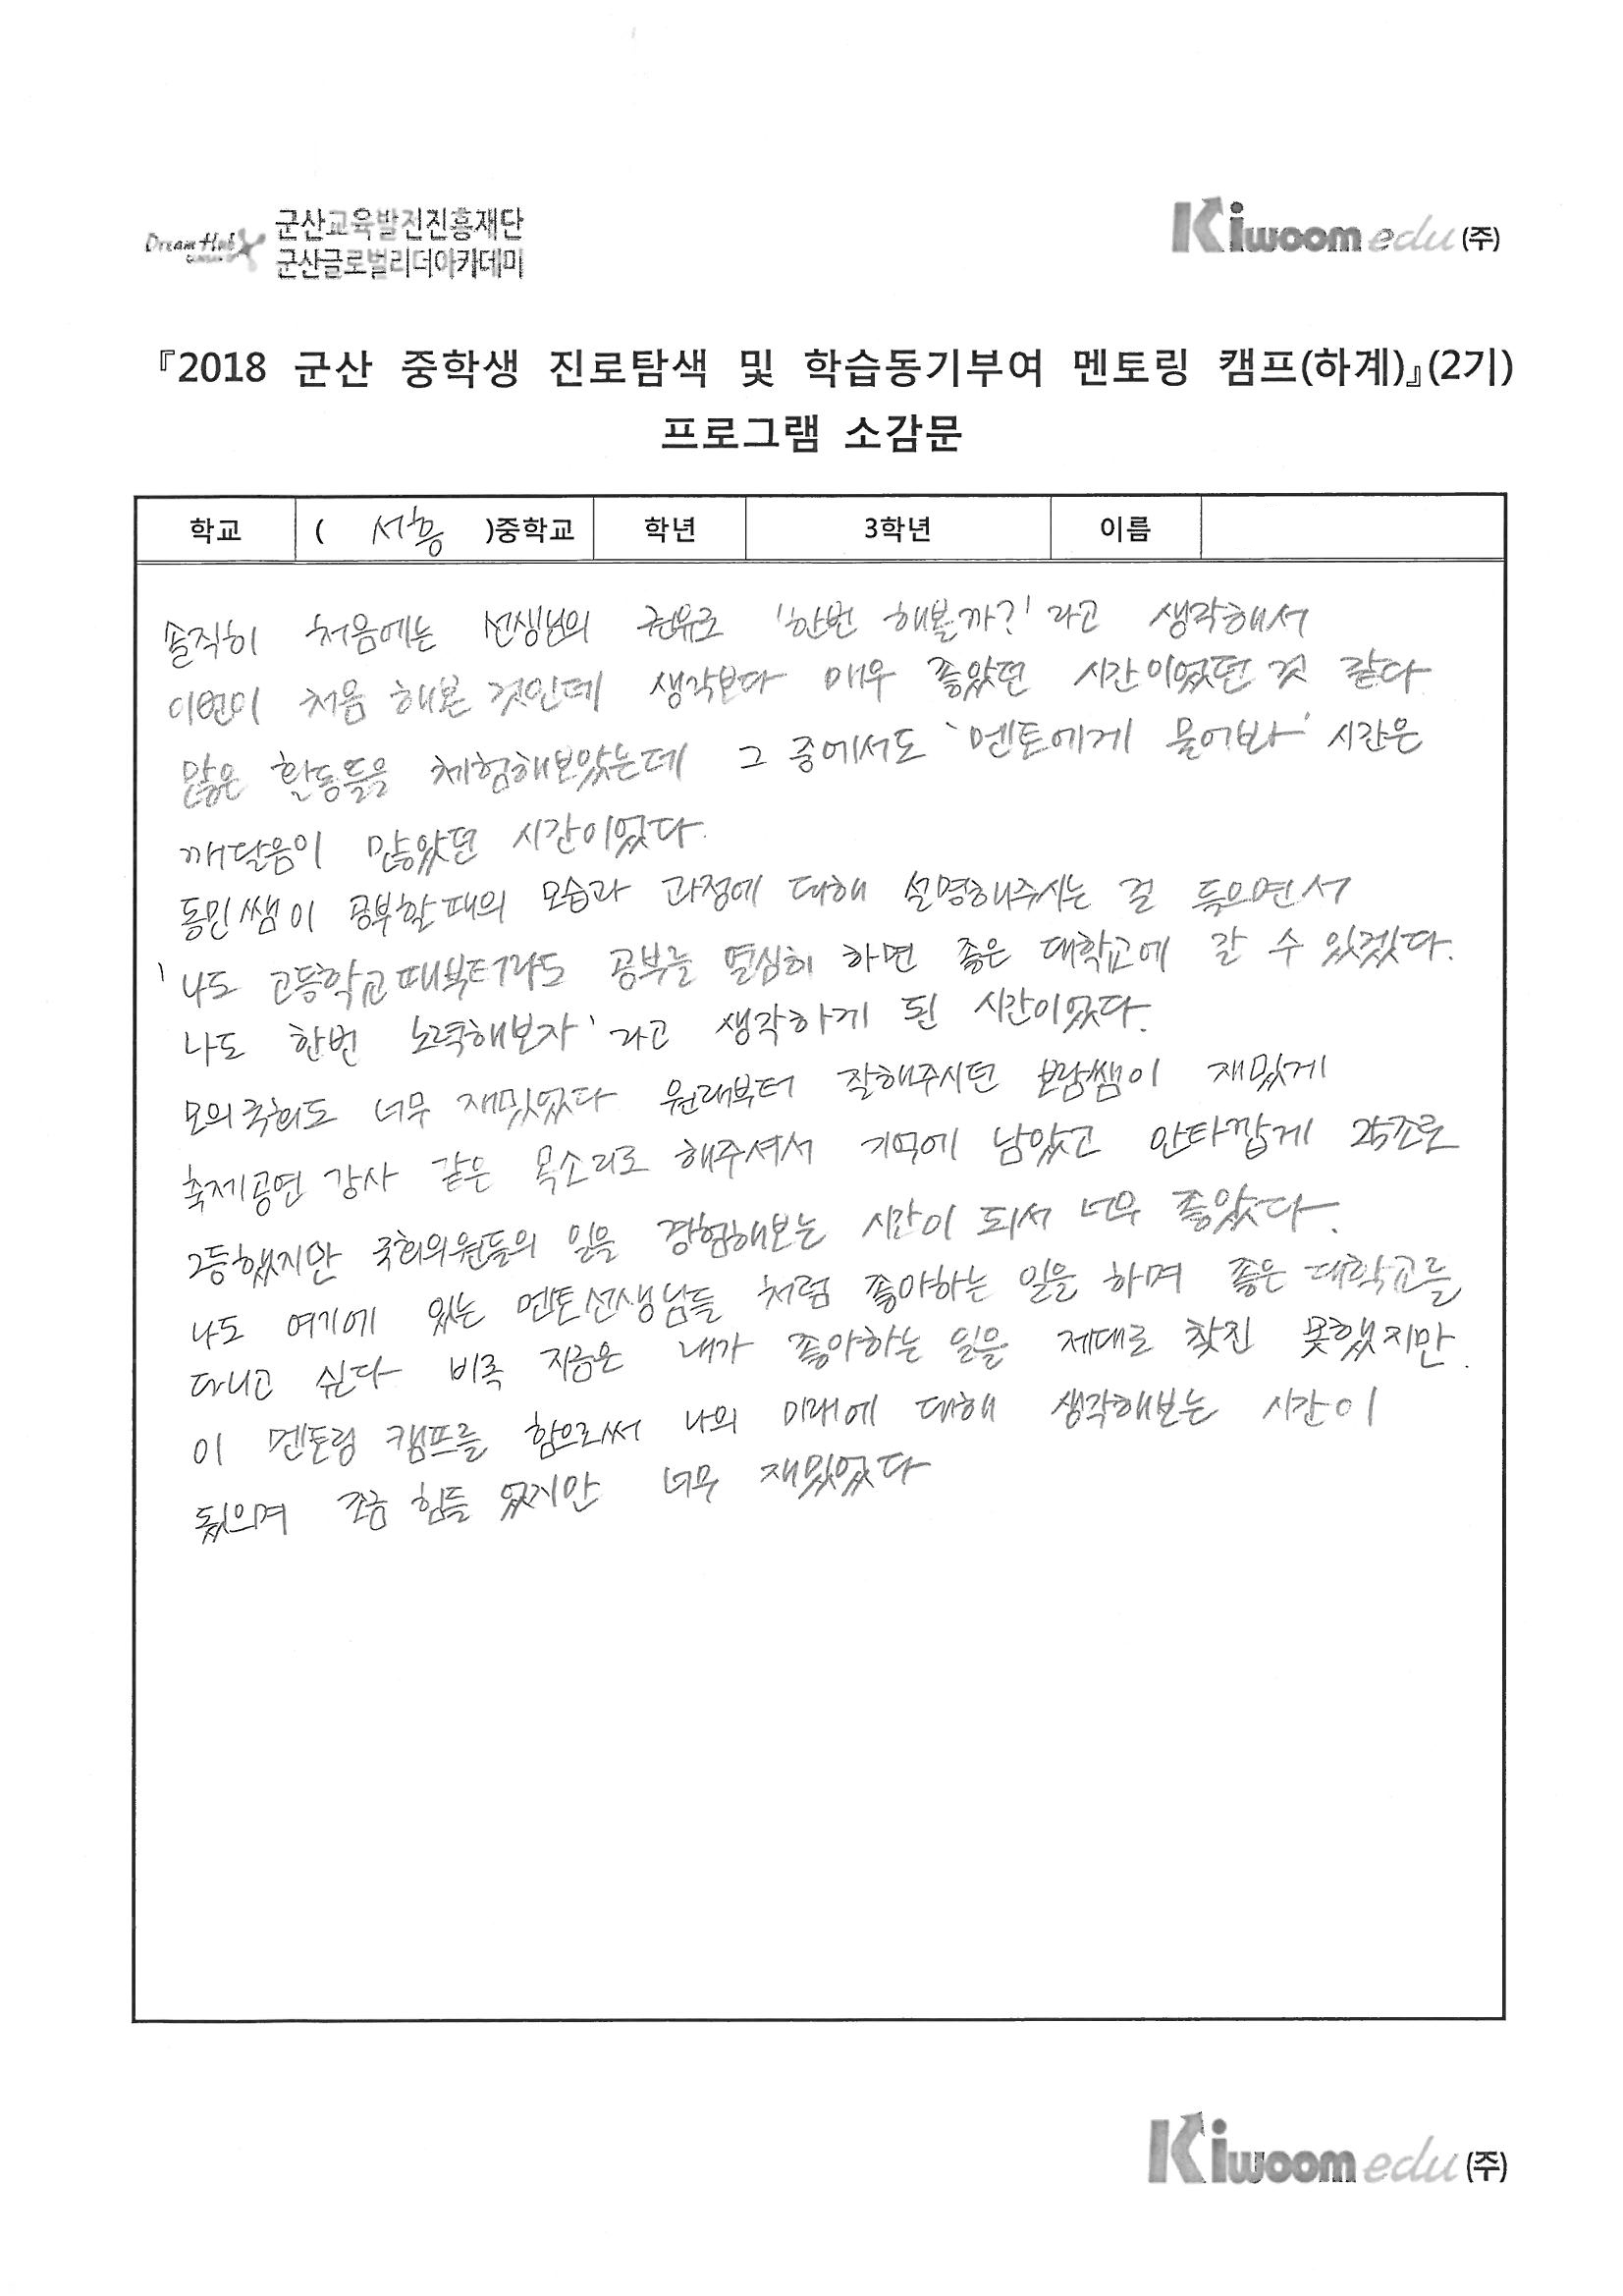 Dream Hub
GUNSAN
군산교육발전진흥재단
군산글로벌리더아카데미
Kiwoom edu (주)
『2018 군산 중학생 진로탐색 및 학습동기부여 멘토링 캠프(하계)』(2기)
프로그램 소감문
학교 ( 서흥 )중학교 학년 3학년 이름
솔직히 처음에는 선생님의 권유로 '한번 해볼까?' 라고 생각해서
이번이 처음 해본 것인데 생각보다 매우 좋았던 시간이었던 것 같다
많은 활동들을 체험해보았는데 그 중에서도 '멘토에게 물어봐' 시간은
깨달음이 많았던 시간이었다.
동민쌤이 공부할때의 모습과 과정에 대해 설명해주시는 걸 듣으면서
'나도 고등학교때부터라도 공부를 열심히 하면 좋은 대학교에 갈 수 있겠다.
나도 한번 노력해보자' 라고 생각하게 된 시간이었다.
모의국회도 너무 재밌었다 원래부터 잘해주시던 보람쌤이 재밌게
축제공연 강사 같은 목소리로 해주셔서 기억에 남았고 안타깝게 2등
2등했지만 국회의원들의 일을 경험해보는 시간이 되서 너무 좋았다.
나도 여기에 있는 멘토선생님들 처럼 좋아하는 일을 하며 좋은 대학교를
다니고 싶다 비록 지금은 내가 좋아하는 일을 제대로 찾진 못했지만.
이 멘토링 캠프를 함으로써 나의 미래에 대해 생각해보는 시간이
됬으며 조금 힘들 었지만 너무 재밌었다
Kiwoom edu (주)